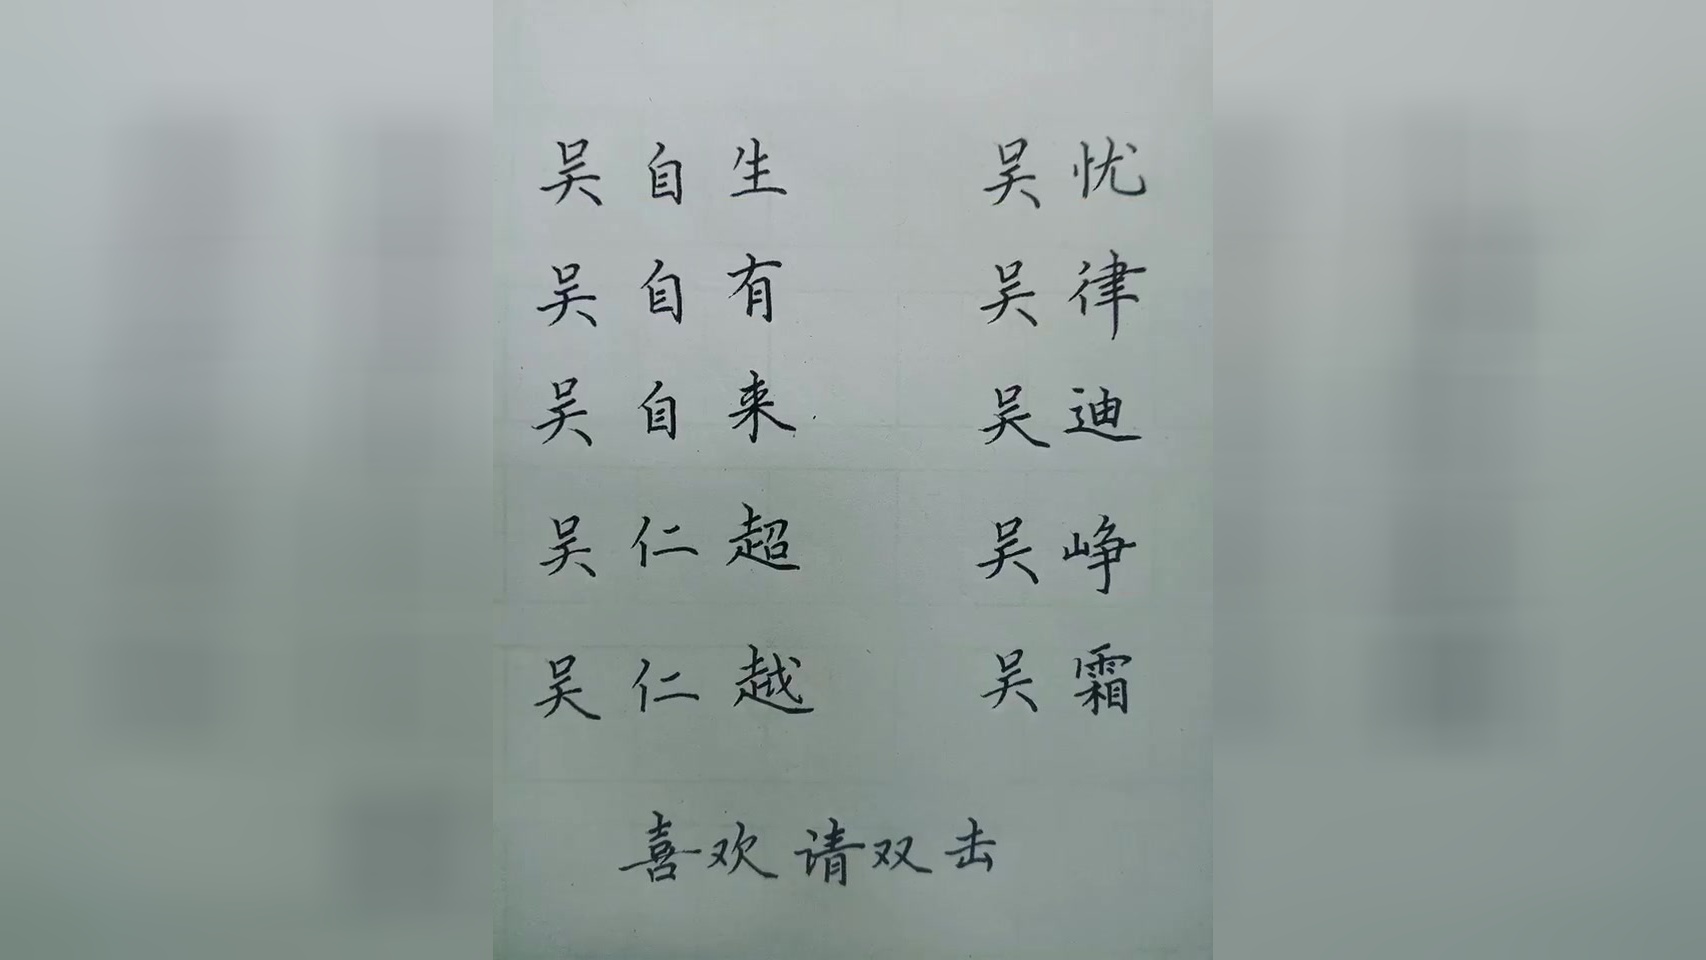 吴自生 吴忧
吴自有 吴律
吴自来 吴迪
吴仁超 吴峥
吴仁越 吴霜
喜欢请双击